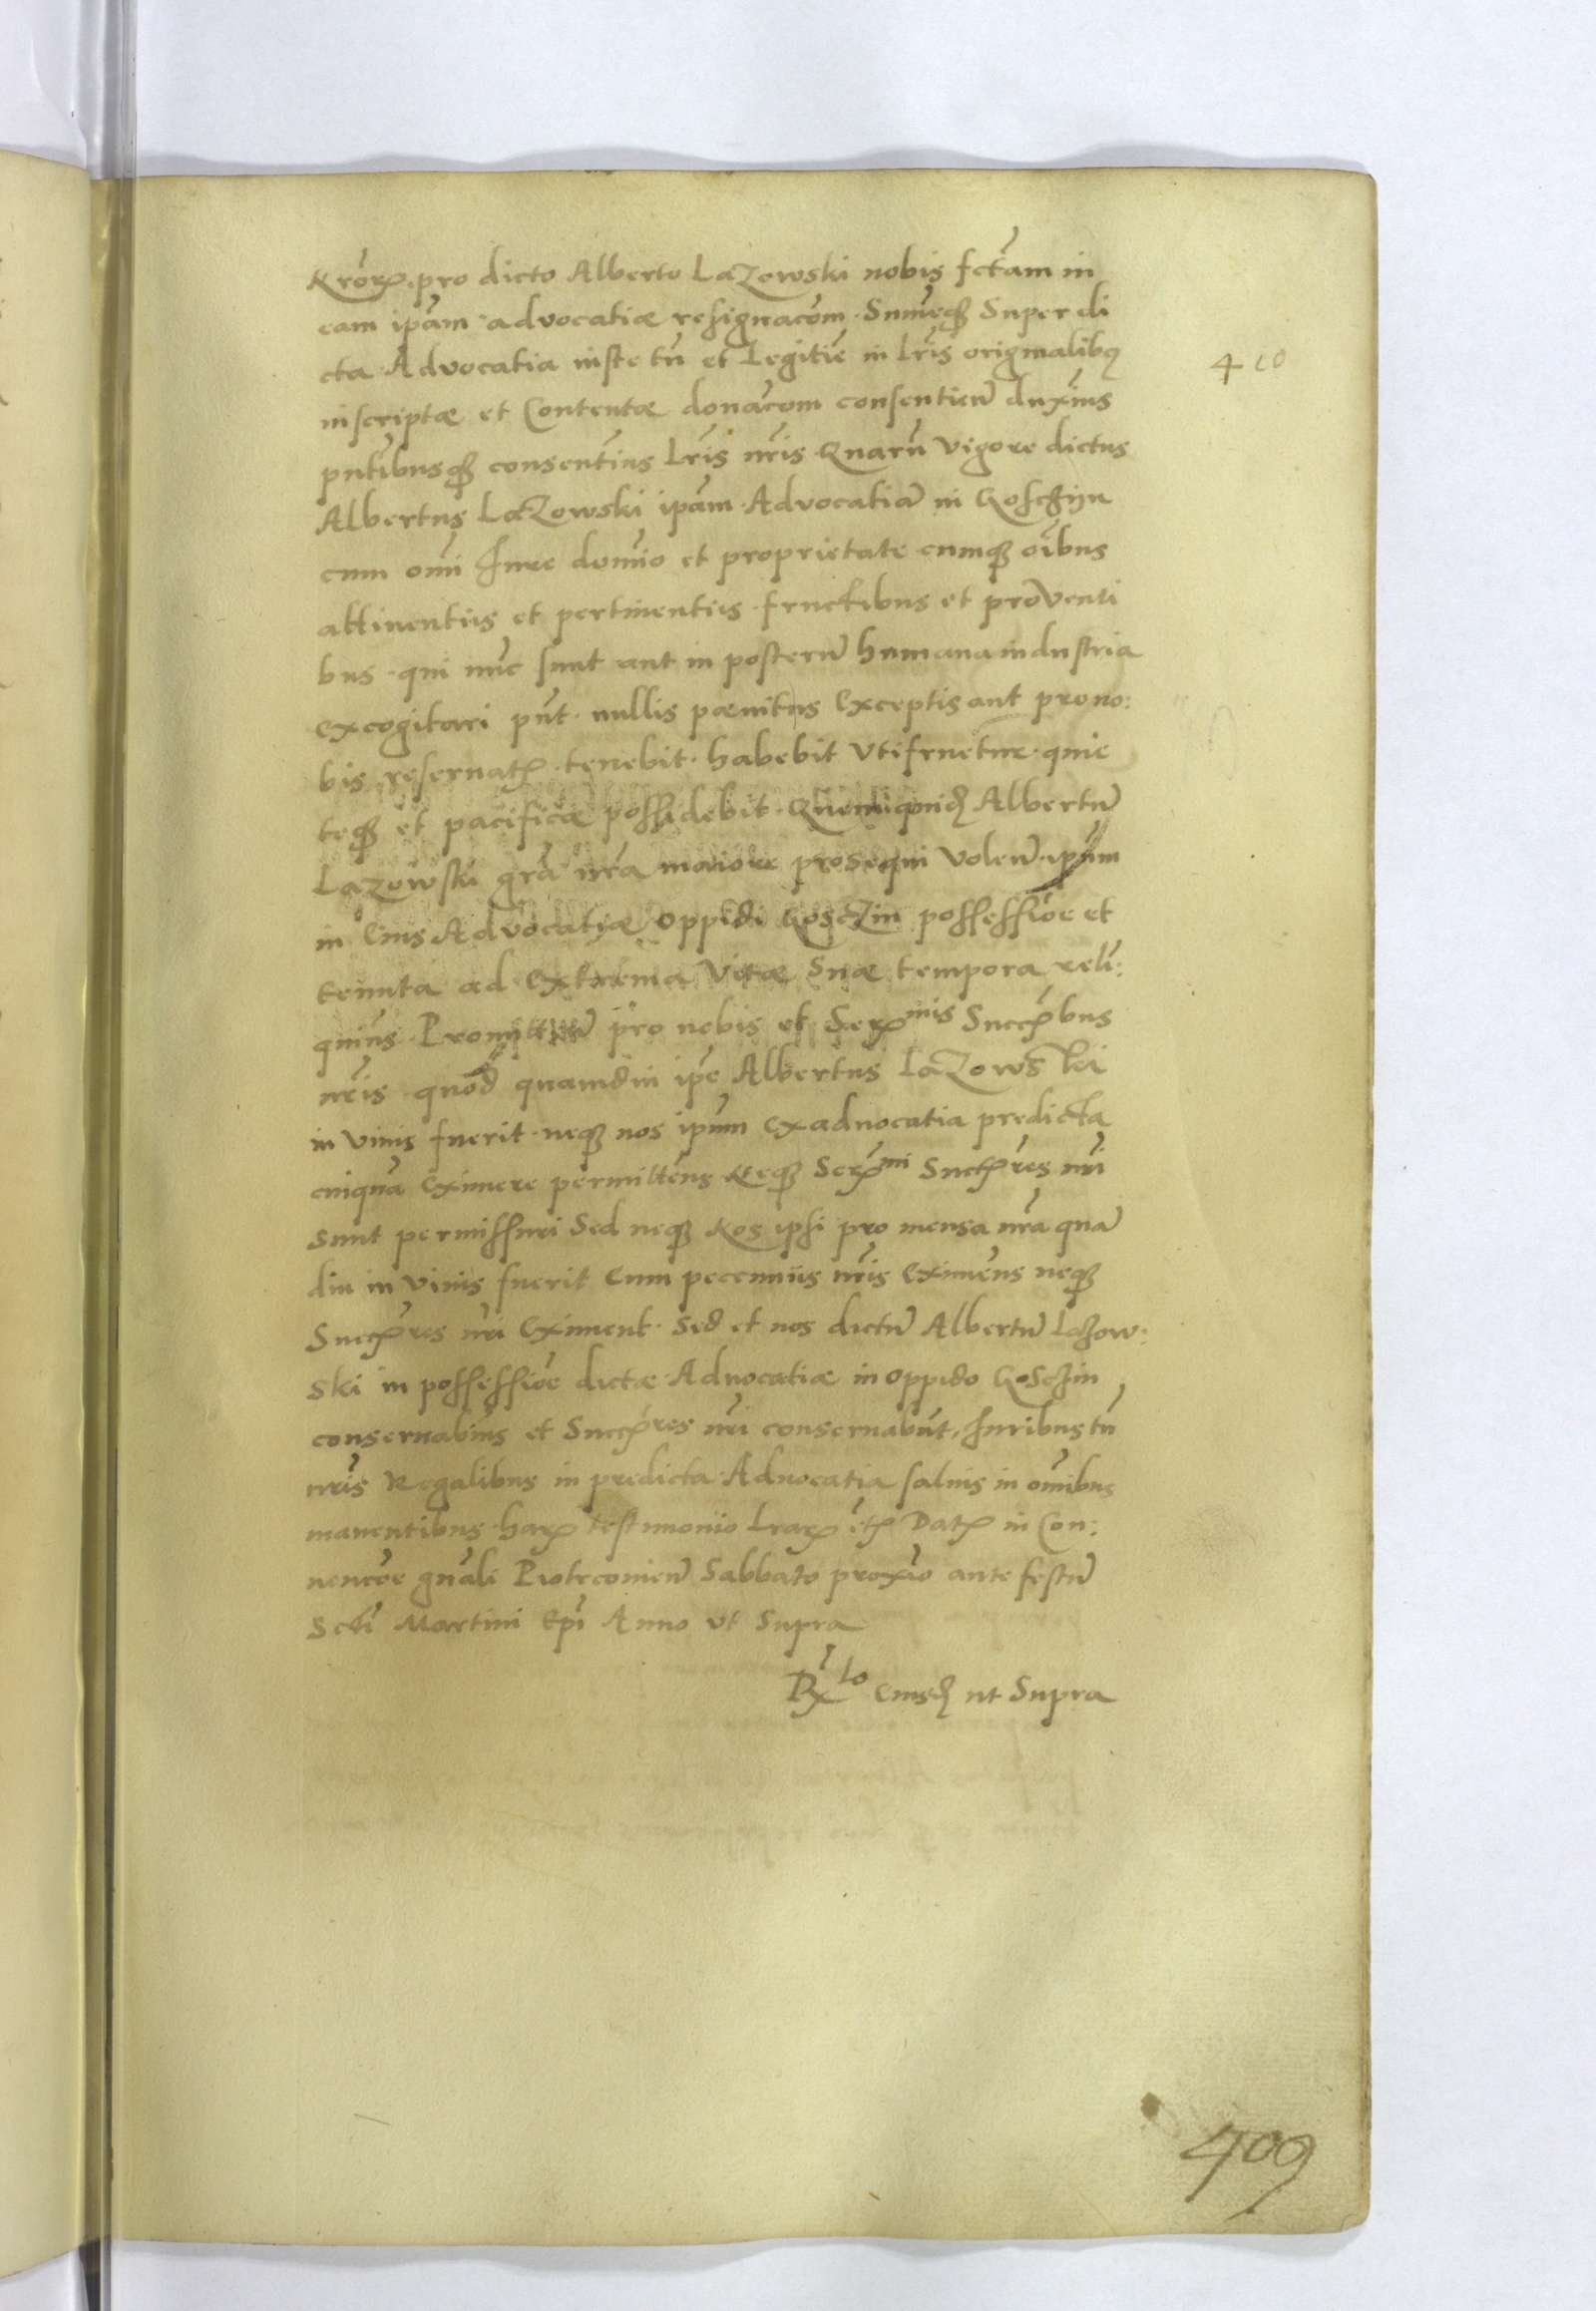 nrorꝝ pro dicto Alberto LaZowski nobis fctam in
eam ipam advocatiæ resignacom Sumeqꝫ Super di
cta Advocatia iuste tn et Legitie in Lris originalibꝫ
inscriptæ et Contentæ donacom consentien duxims
pntibusqꝫ consentims Lris nris Quaru Vigore dictus
Albertus LaZowski ipam Advocatia in Goschijn
cum omi Iure domio et proprietate cumqꝫ oibus
attinentijs et pertinentijs fructibus et proventi
bus qui nuc sunt aut in posteru humana industria
excogitari pnt nullis pænitus Exceptis aut pro no:
bis reservatꝭ tenebit habebit Vtifruetur quie
teqꝫ et pacificæ possidebit Albertu
Lazowski gra nra maiore prosequi Volen ipum
in Eius Advocatiæ oppidi GosсZin possessioe et
tenuta ad Extrema Vitæ Suæ tempora reli:
quims pro nobis et Serꝫmis Succꝫbus
nris quod quamdiu ipe Albertus LaZowski
in Vivis fuerit neqꝫ nos ipum ex advocatia predicta
cuiqua Eximere permittems Neqꝫ Serꝫmi Succꝫres nri
sunt permissuri Sed neqꝫ Nos ipsi pro mensa nra qua
diu in Vivis fuerit Eum pecunijs nris Eximems neqꝫ
Succꝫres nri Eximent Sed et nos dictu Albertu Lazow:
ski in possessioe dictæ Advocatiæ in oppido GosсZin
conservabims et Succꝫres nri conservabut, Iuribus tn
nris Regalibus in predicta Advocatia salvis in omibus
manentibus harꝝ testimonio Lrarꝝ etꝭ Datꝭ in Con:
vencoe gnali Piotrcovien Sabbato proxio ante festu
Scti Martini Epi Anno vt Supra
Rlo Eiusd ut Supra
410
409